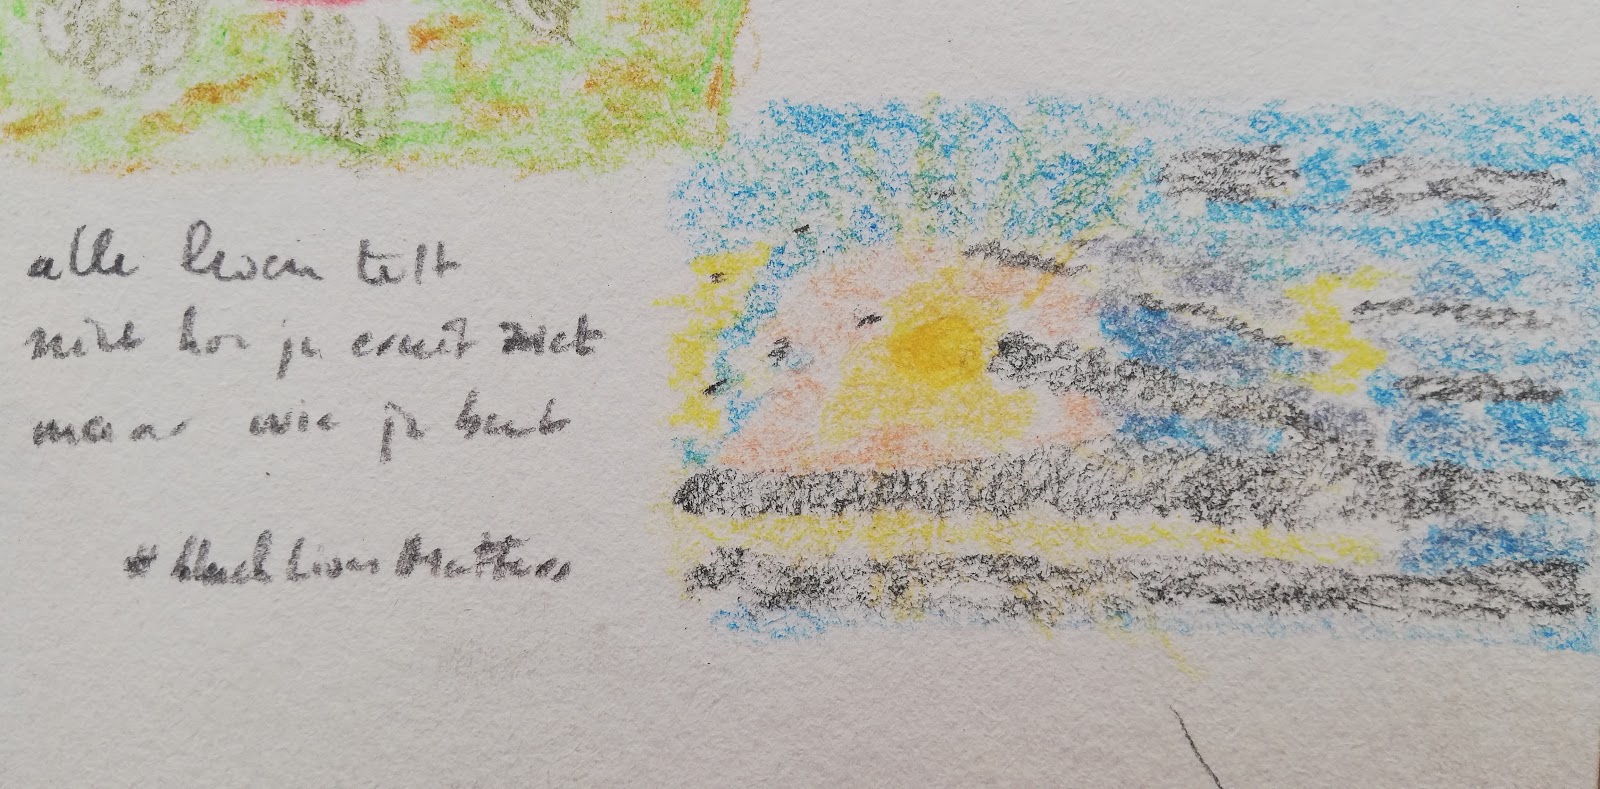 alle leven telt
niet hoe je eruit ziet
maar wie je bent
#blackLivesMatters